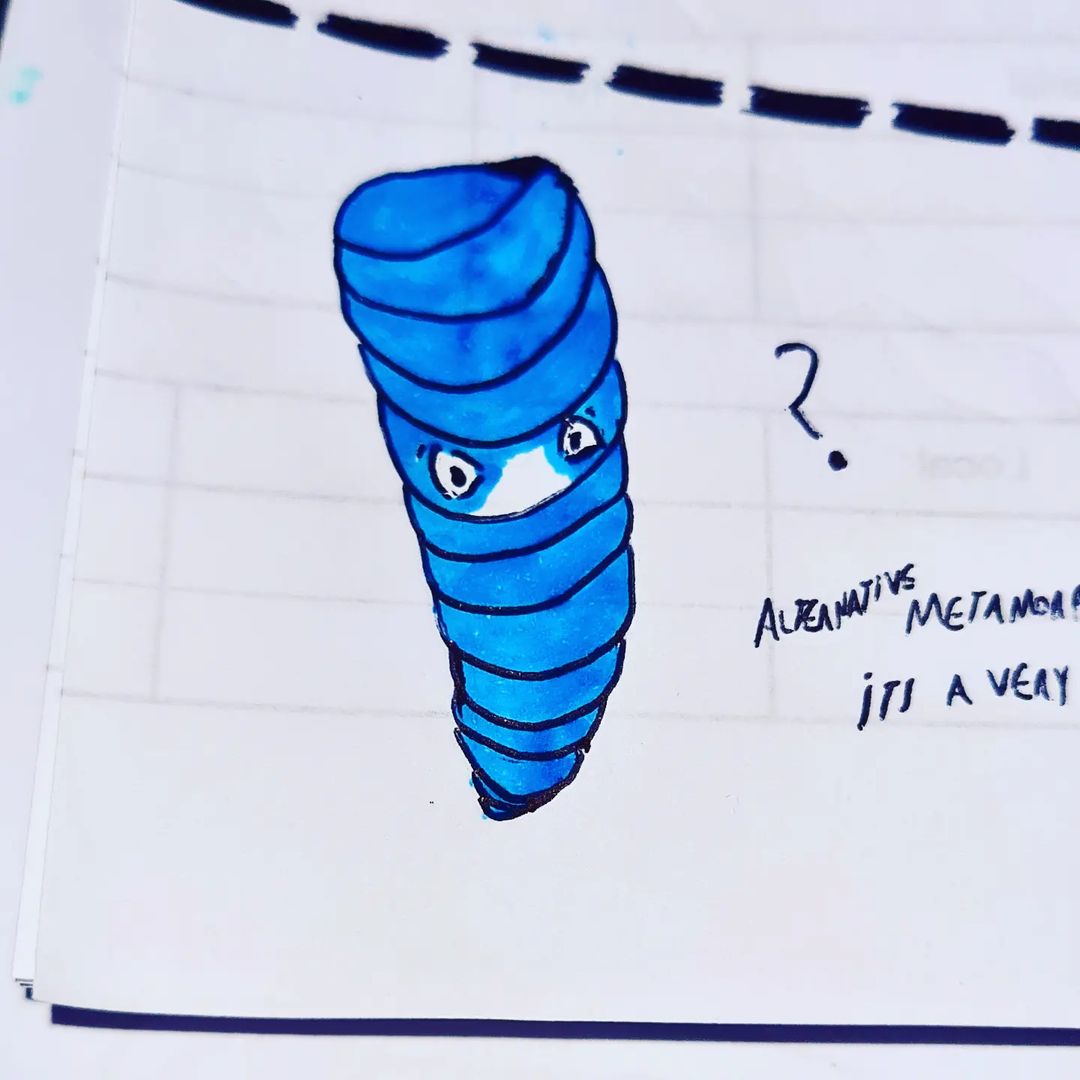 ?
ALTERNATIVE METAMOR
ITS A VERY